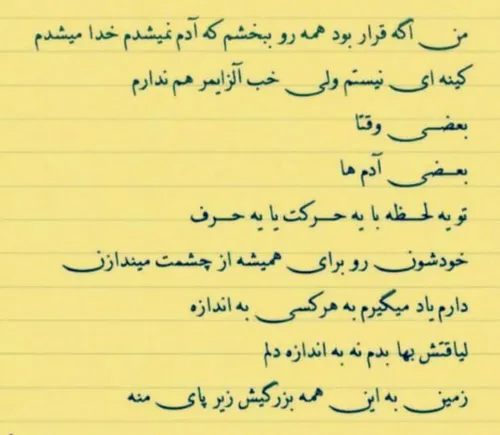 من اگه قرار بود همه رو ببخشم که آدم نمیشدم خدا میشدم
کینه ای نیستم ولی خب آلزایمر هم ندارم
بعضی وقتا
بعضی آدم ها
تو یه لحظه با یه حرکت یا یه حرف
خودشون رو برای همیشه از چشمت میندازن
دارم یاد میگیرم به هرکسی به اندازه
لیاقتش بها بدم نه به اندازه دلم
زمین به این همه بزرگیش زیر پای منه